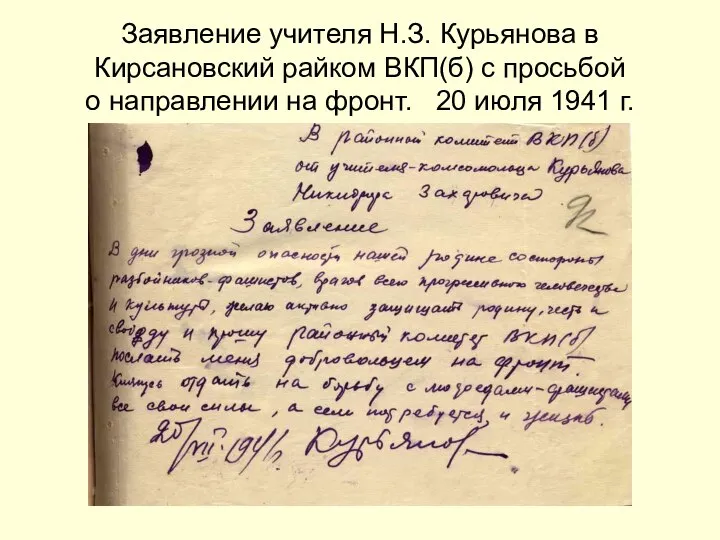 Заявление учителя Н.З. Курьянова в
Кирсановский райком ВКП(б) с просьбой
о направлении на фронт. 20 июля 1941 г.
В районный комитет ВКП(б)
от учителя-комсомольца Курьянова
Никифора Захаровича
Заявление
В дни грозной опасности нашей родине со стороны
разбойников-фашистов, врагов всего прогрессивного человечества
и культуры, желаю активно защищать родину, честь и
свободу и прошу районный комитет ВКП(б)
послать меня добровольцем на фронт.
Клянусь отдать на борьбу с людоедами-фашистами
все свои силы, а если потребуется, и жизнь.
20/VII-1941 г. Курьянов